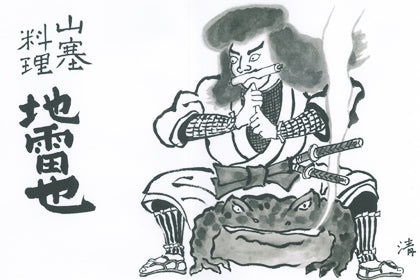 山塞
料理
地雷也
清